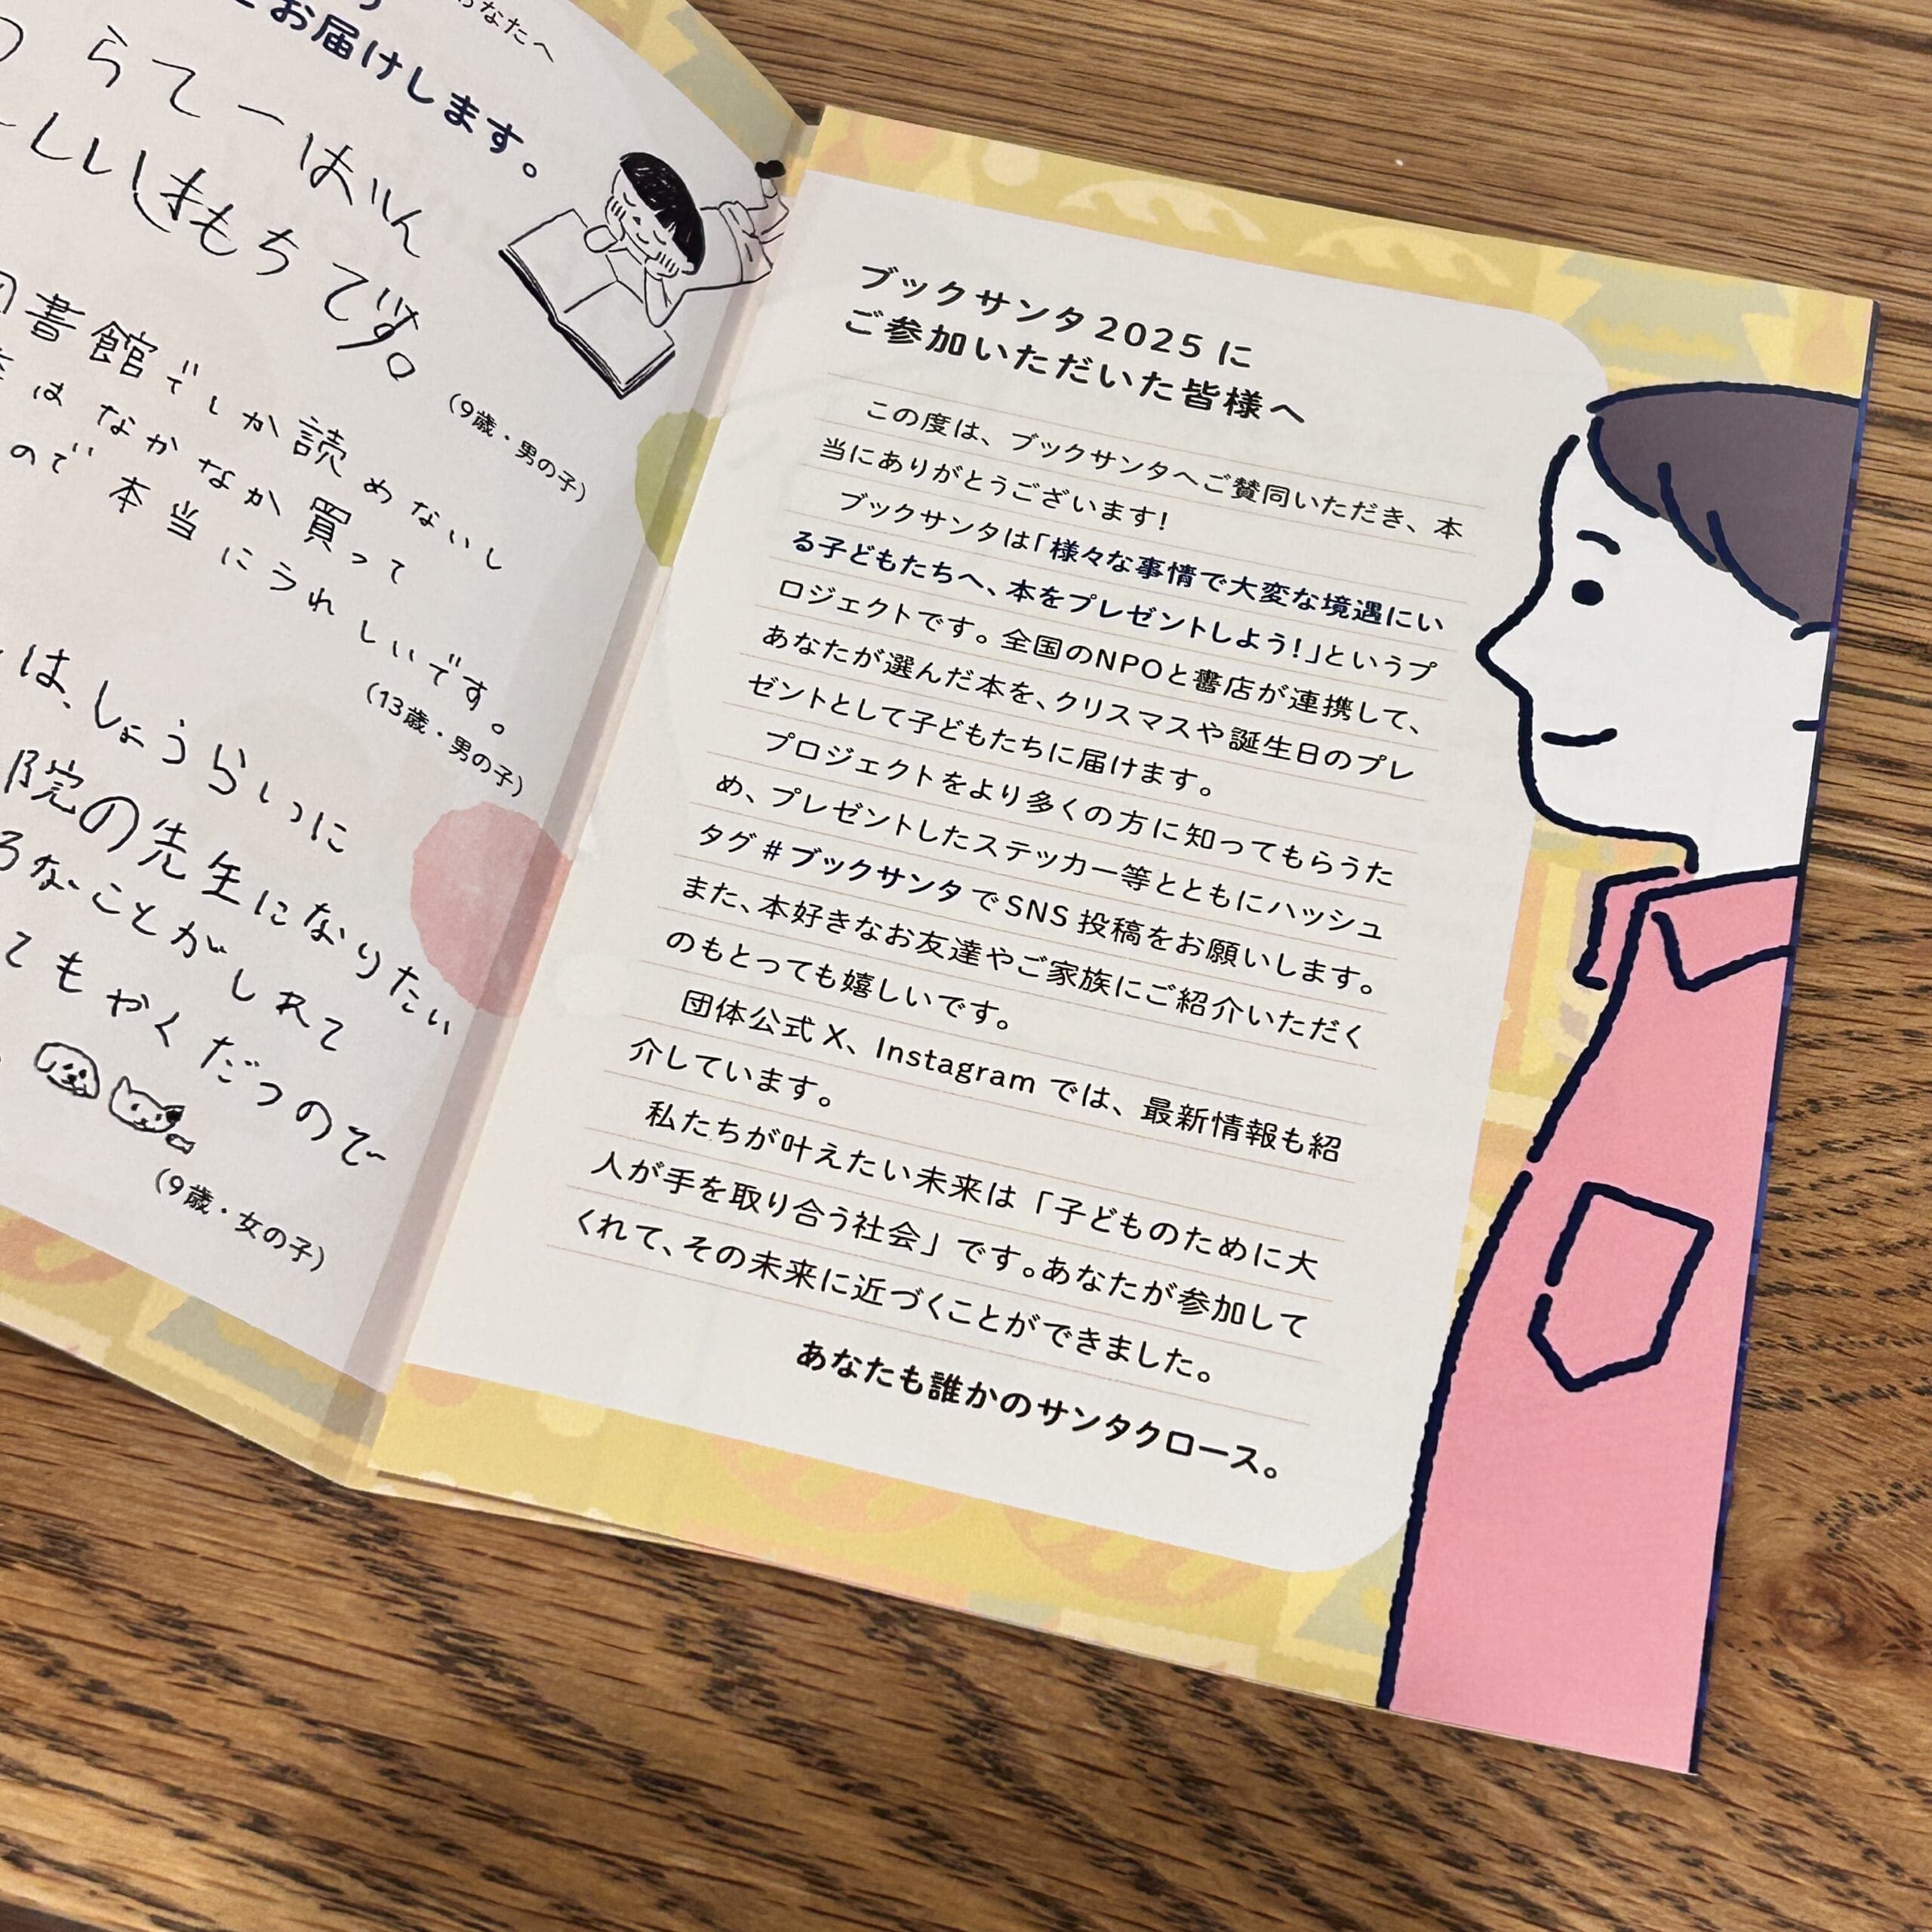 なたへ
お届けします。
らてーはいん
しいきもちです。
(9歳・男の子)
書館でしか読めないし
はなかなか買って
ので本当にうれしいです。
(13歳・男の子)
は、しょうらいに
院の先生になりたい
なことがしれて
てもやくだつので
(9歳・女の子)
ブックサンタ2025に
ご参加いただいた皆様へ
この度は、ブックサンタへご賛同いただき、本
当にありがとうございます!
ブックサンタは「様々な事情で大変な境遇にい
る子どもたちへ、本をプレゼントしよう!」というプ
ロジェクトです。全国のNPOと書店が連携して、
あなたが選んだ本を、クリスマスや誕生日のプレ
ゼントとして子どもたちに届けます。
プロジェクトをより多くの方に知ってもらうた
め、プレゼントしたステッカー等とともにハッシュ
タグ#ブックサンタでSNS投稿をお願いします。
また、本好きなお友達やご家族にご紹介いただく
のもとっても嬉しいです。
団体公式X、Instagramでは、最新情報も紹
介しています。
私たちが叶えたい未来は「子どものために大
人が手を取り合う社会」です。あなたが参加して
くれて、その未来に近づくことができました。
あなたも誰かのサンタクロース。